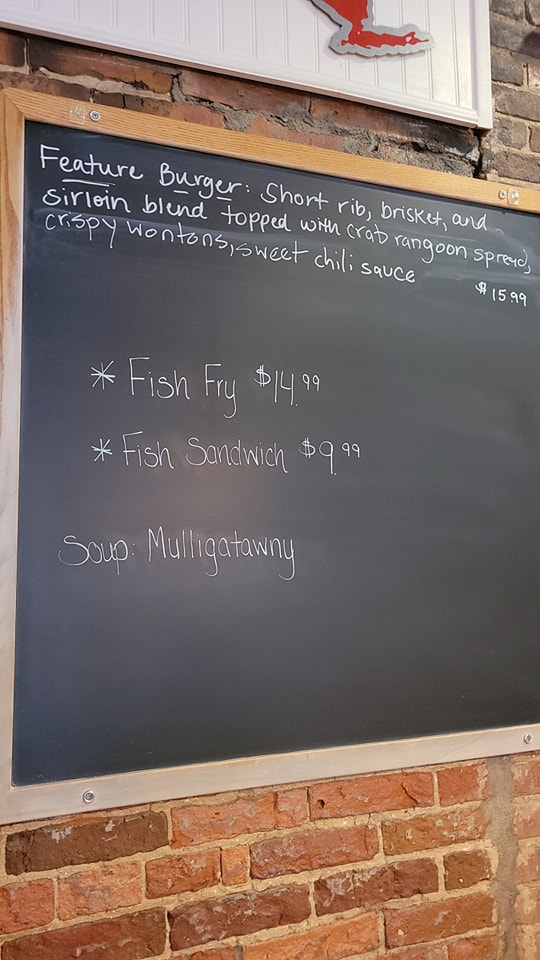 Feature Burger: Short rib, brisket, and
sirloin blend topped with crab rangoon spread,
crispy wontons, sweet chili sauce
$15.99
* Fish Fry $14.99
* Fish Sandwich $9.99
Soup: Mulligatawny